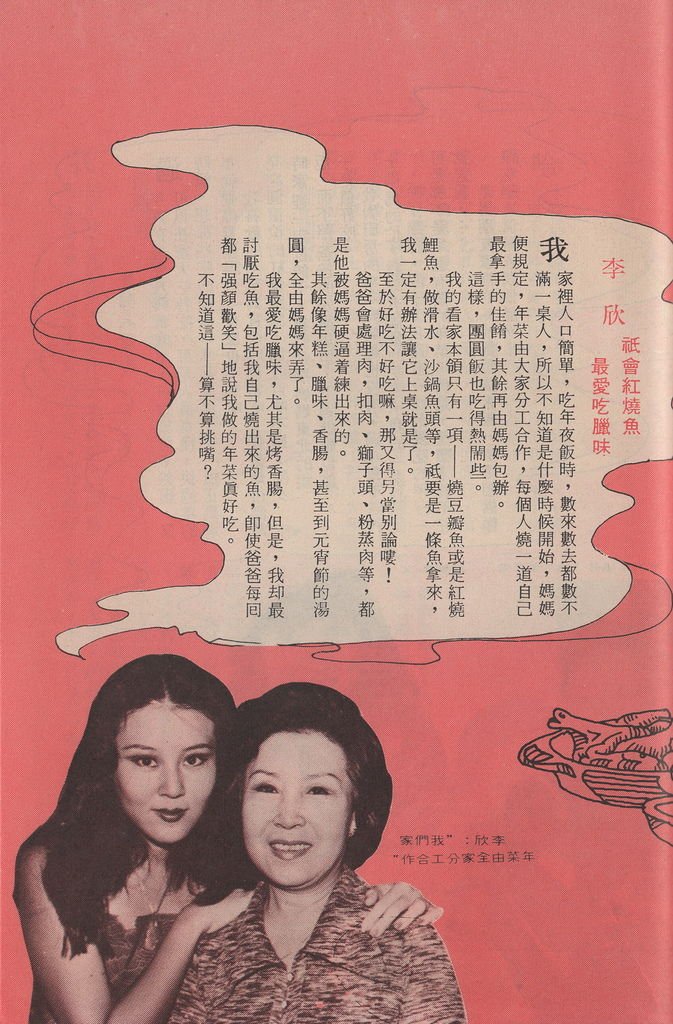 李欣
祇會紅燒魚
最愛吃臘味
我家裡人口簡單，吃年夜飯時，數來數去都數不
滿一桌人，所以不知道是什麼時候開始，媽媽
便規定，年菜由大家分工合作，每個人燒一道自己
最拿手的佳餚，其餘再由媽媽包辦。
這樣，團圓飯也吃得熱鬧些。
我的看家本領只有一項——燒豆瓣魚或是紅燒
鯉魚，做滑水、沙鍋魚頭等，祇要是一條魚拿來，
我一定有辦法讓它上桌就是了。
至於好吃不好吃嘛，那又得另當別論嘍！
爸爸會處理肉，扣肉、獅子頭、粉蒸肉等，都
是他被媽媽硬逼着練出來的。
其餘像年糕、臘味、香腸，甚至到元宵節的湯
圓，全由媽媽來弄了。
我最愛吃臘味，尤其是烤香腸，但是，我却最
討厭吃魚，包括我自己燒出來的魚，卽使爸爸每囘
都「强顏歡笑」地說我做的年菜眞好吃。
不知道這——算不算挑嘴？
李欣：”我們家
年菜由全家分工合作”